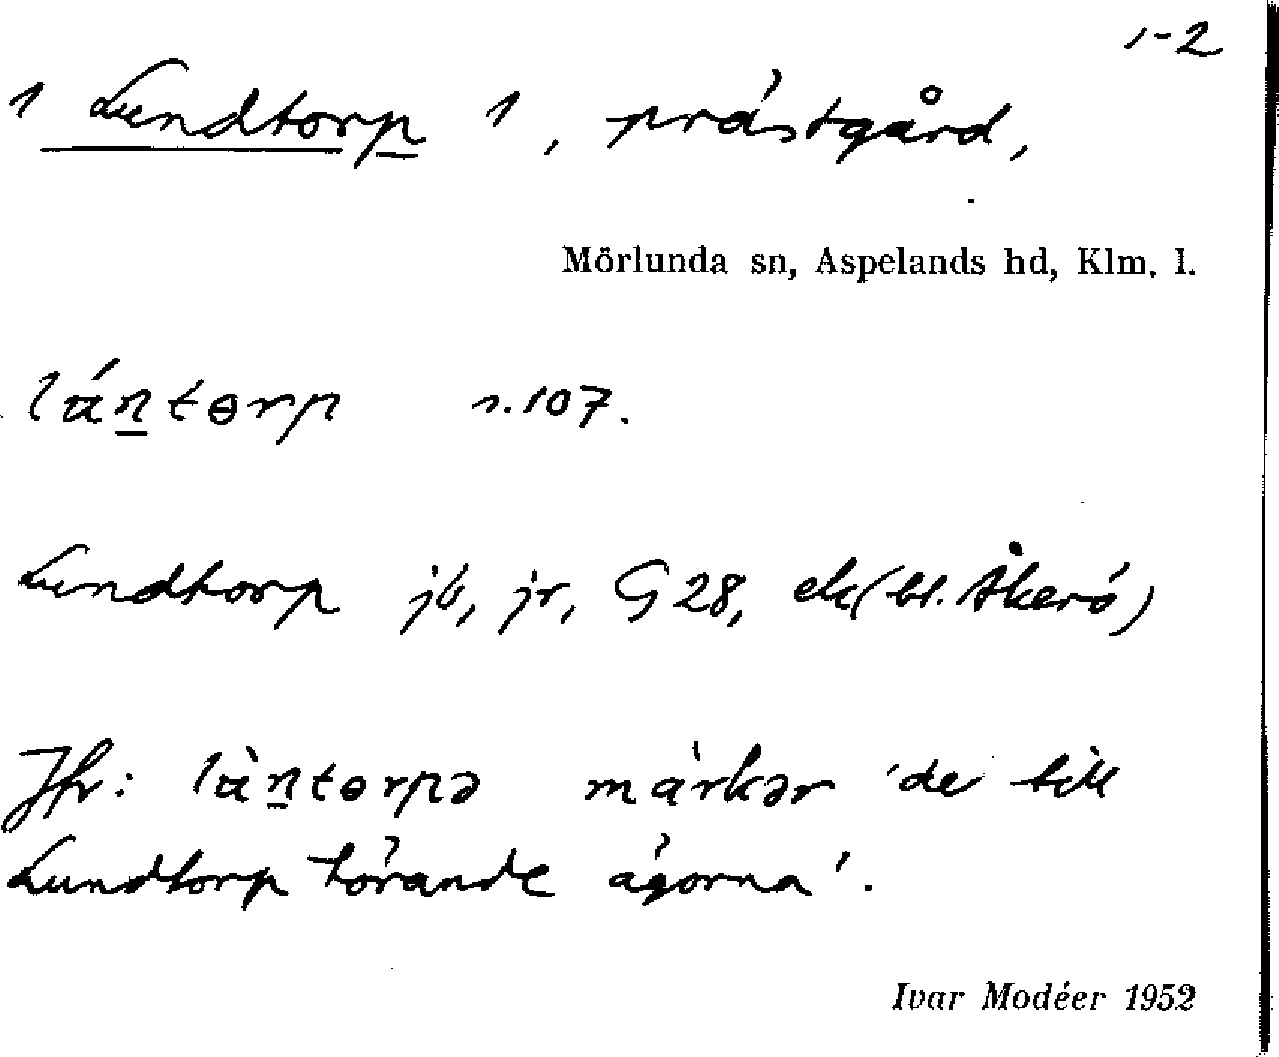 1-2
1 Lundtorp 1, prästgård,
Mörlunda sn, Aspelands hd, Klm. l.
lán̲tɵrp s. 107.
Lundtorp jb, jr, G 28, ek (bl. Åkerö)
Jfr: làn̲tɵrpə màrkər 'de till
Lundtorp hörande ägorna'.
Ivar Modéer 1952